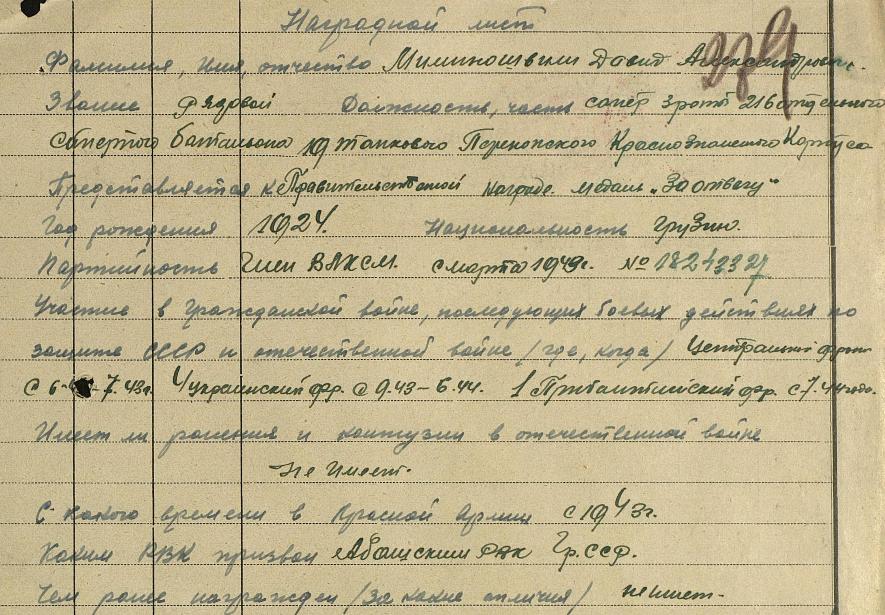 Наградной лист
Фамилия, имя, отчество Миминошвили Давид Александрович.
Звание рядовой Должность, часть сапер 3 роты 216 отдельного
саперного батальона 19 танкового Перекопского Краснознаменного Корпуса
Представляется к Правительственной награде медаль „За отвагу"
Год рождения 1924. Национальность Грузин.
Партийность Член ВЛКСМ. с марта 1949г. №
Участие в гражданской войне, последующих боевых действиях по
защите СССР и отечественной войне /где, когда/ Центральный фронт
с 6-7.43г. 4 украинский фр. с 9.43-6.44. 1 Прибалтийский фр. с 7.44 года.
Имеет ли ранения и контузии в отечественной войне
не имеет.
С какого времени в Красной Армии с 1943г.
Каким РВК призван Абашским РВК Гр.ССР.
Чем ранее награжден /за какие отличия/ не имеет-